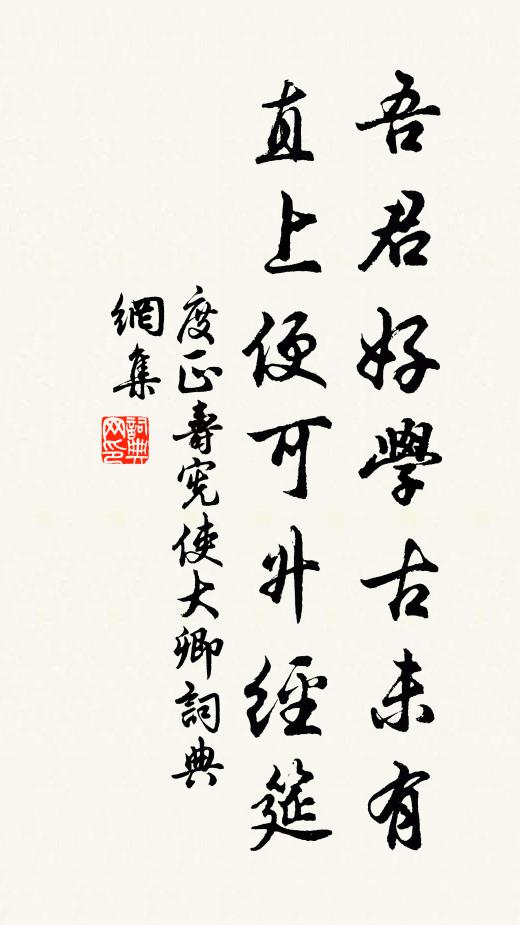 吾君好學古未有
直上便可升經筵
度正壽宪使大卿詞典
網集
詞典
网印